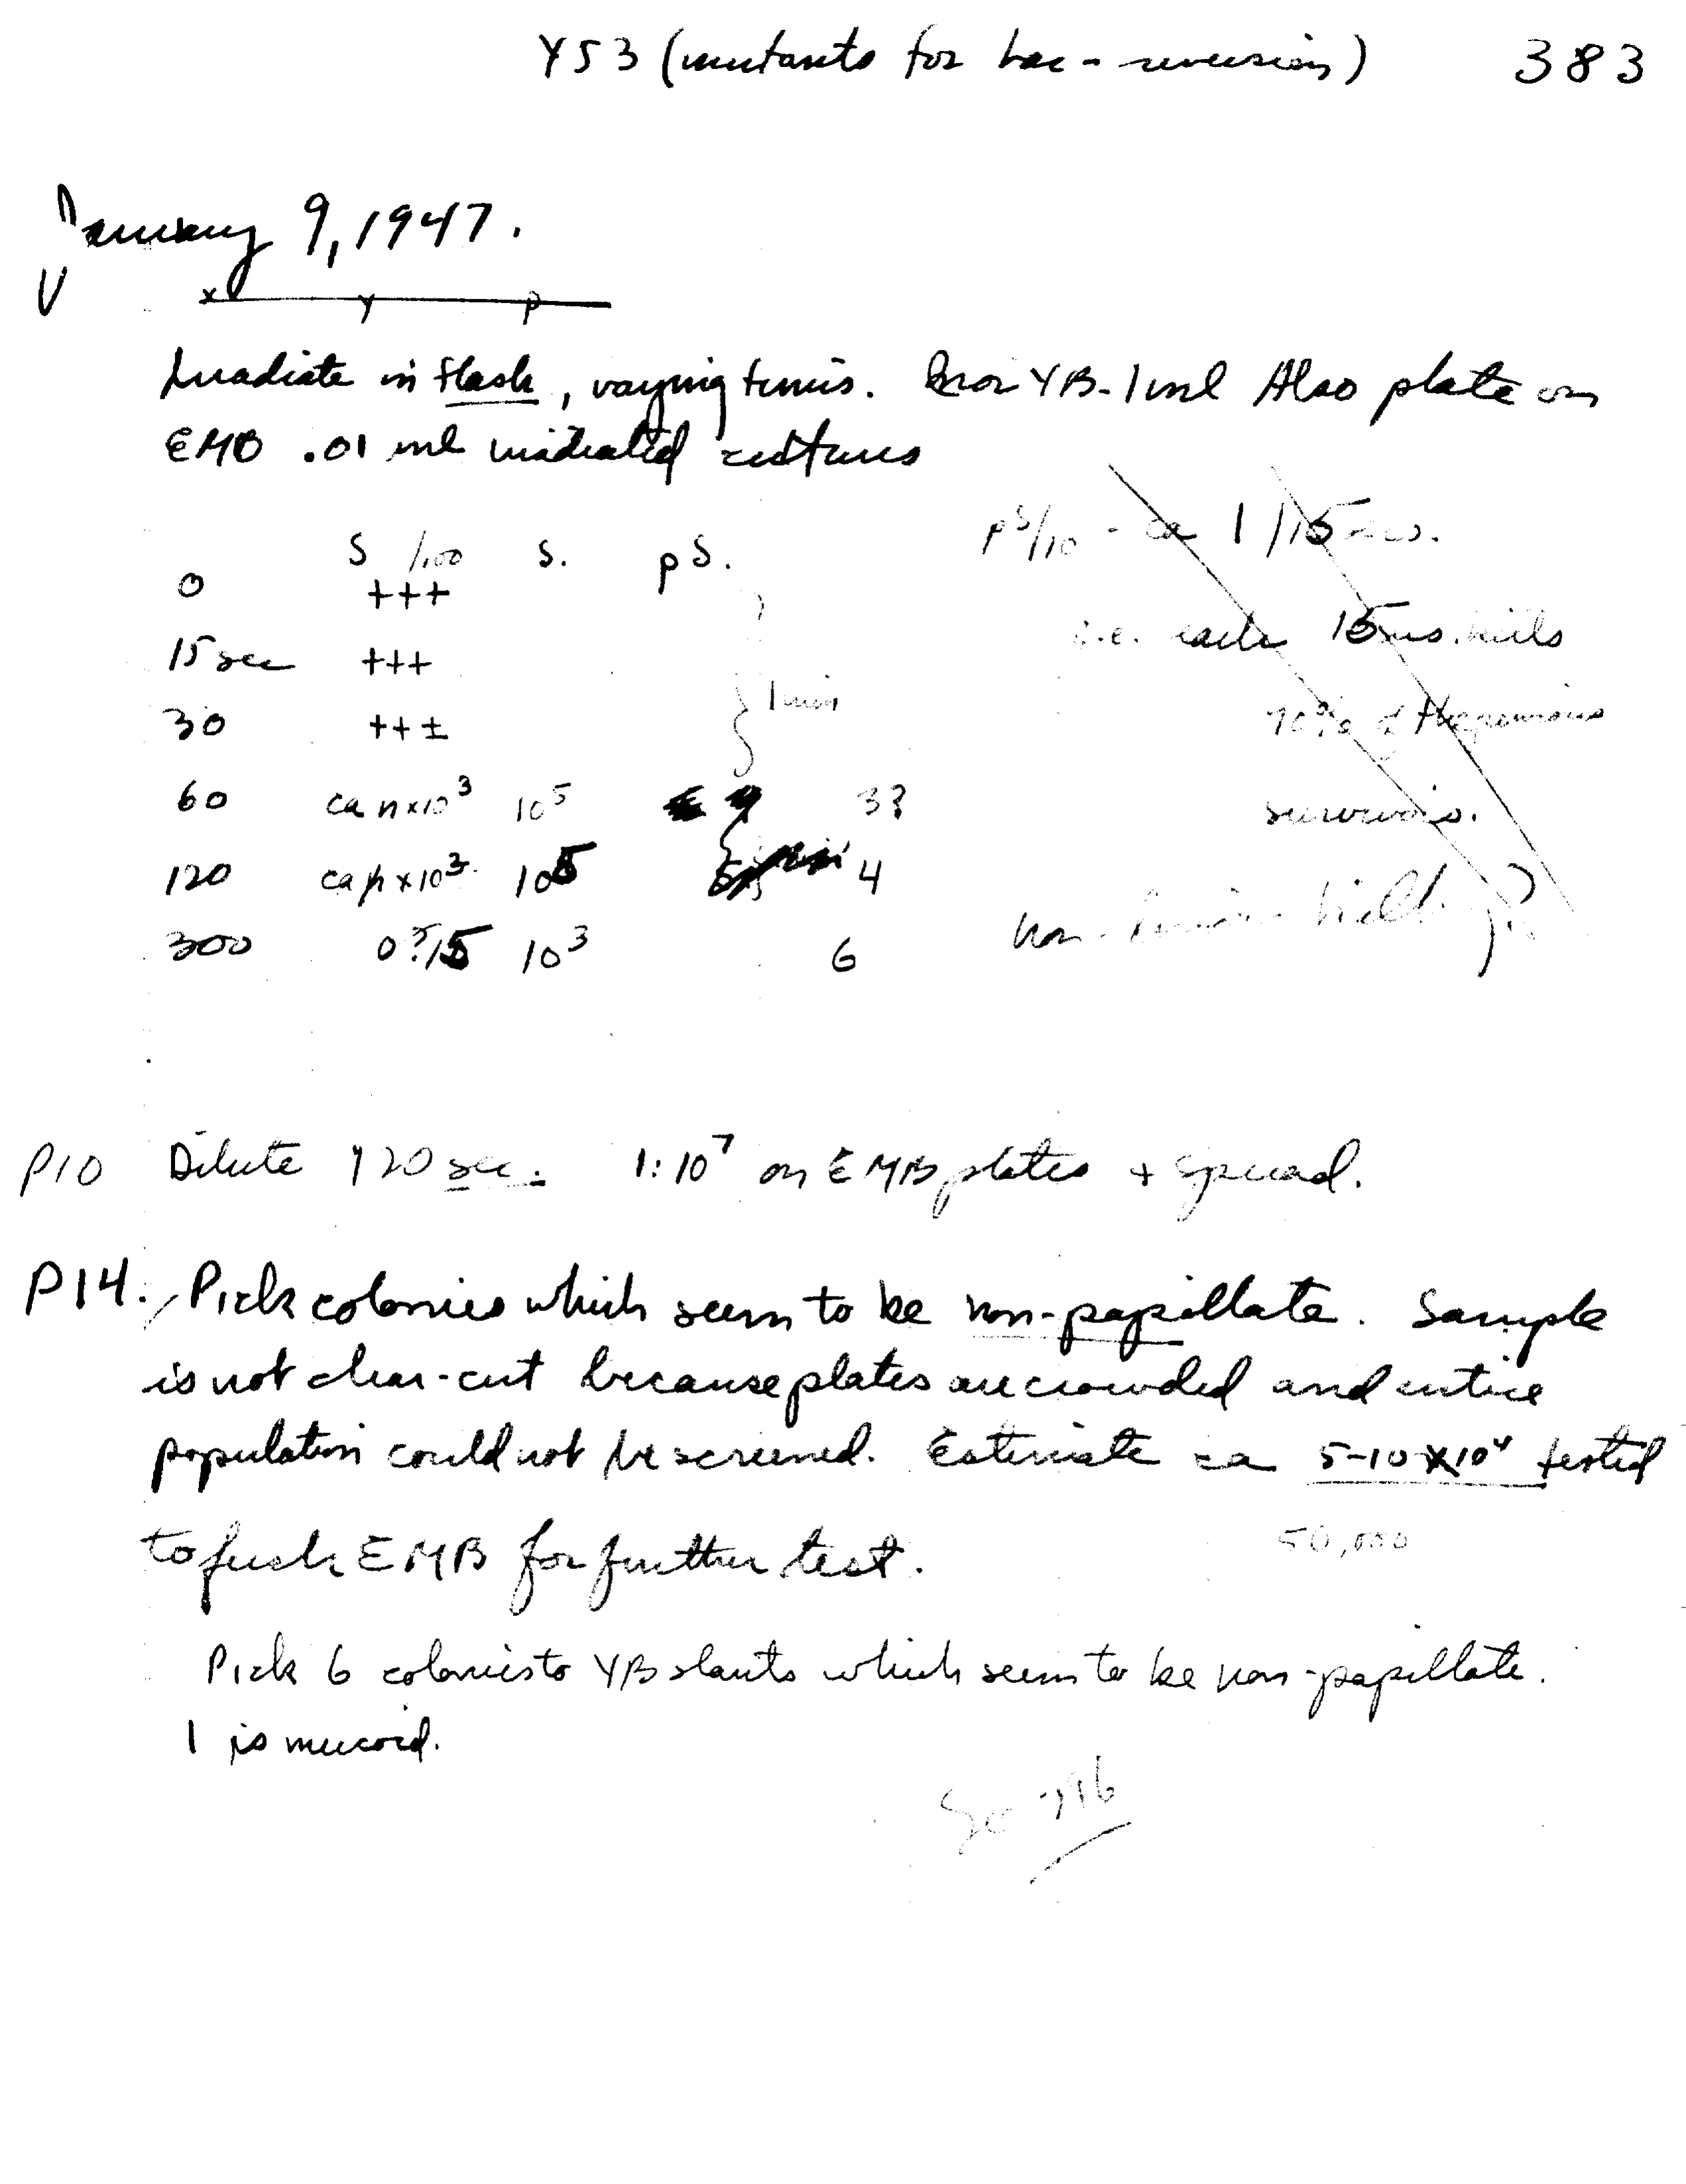 Y53 (mutants for Lac - reversion) 383
January 9, 1947.
V
x Y P
Irradiate in flask, varying times. YB-1ml Also plate on
EMB .01 ml irradiated cultures
S /100 S. pS.
0 +++
15 sec +++
30 ++±
1 min
60 ca n×10³ 10⁵ 3?
120 ca n×10³ 10⁵ 4
300 0?/5 10³ 6
pS/10 - ca 1/15 secs.
i.e. each 15 secs. kills
90% of the previous
survivors.
non-
P10 Dilute 120 sec. 1:10⁷ on EMB plates + spread.
P14. Pick colonies which seem to be non-papillate. Sample
is not clear-cut because plates are crowded and entire
population could not be screened. Estimate ca 5-10×10⁴ tested
50,000
to fresh EMB for further test.
Pick 6 colonies to YB slants which seem to be non-papillate.
1 is mucoid.
See 396